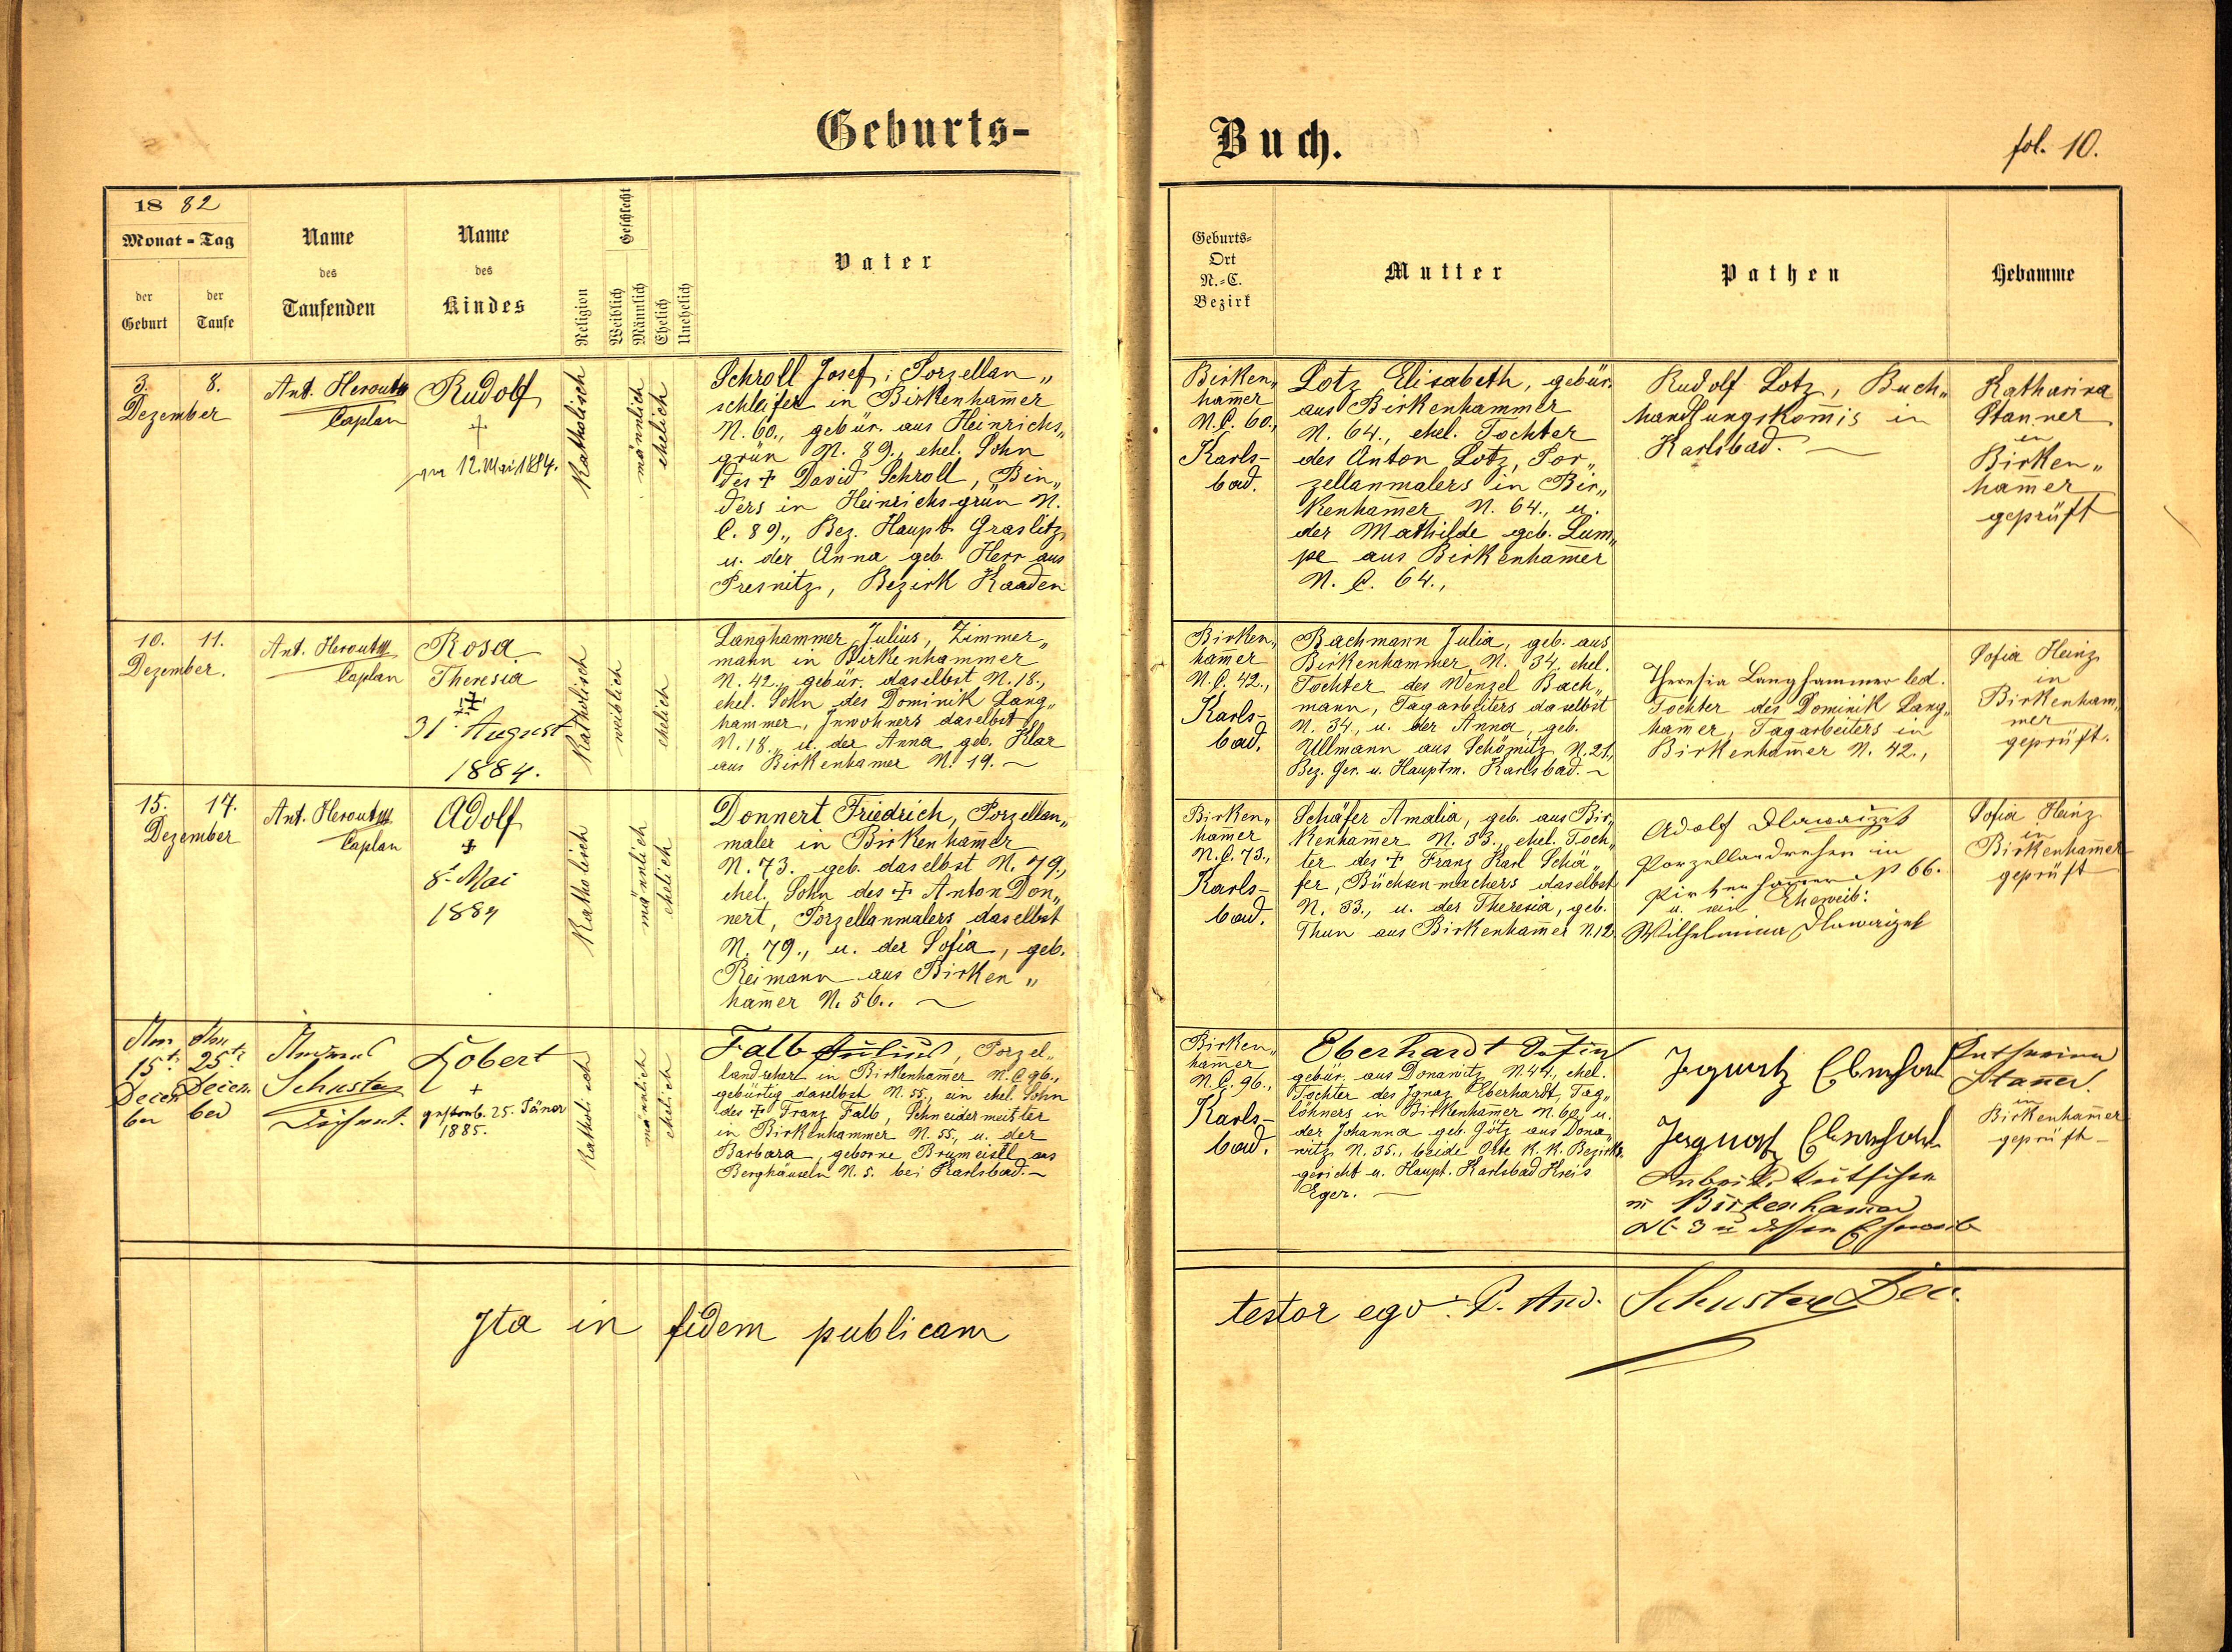 Geburts-
Buch.
fol. 10.
18 82
Monat - Tag
der Geburt
der Taufe
Name des Taufenden
Name des Kindes
Religion
Geschlecht
Weiblich
Männlich
Ehelich
Unehelich
Vater
Geburts-
Ort
N.-C.
Bezirk
Mutter
Pathen
Hebamme
3. 8.
Dezember
Ant. Herout
Caplan
Rudolf
†
am 12. Mai 1884.
Katholisch
männlich
ehelich
Schroll Josef, Porzellan„
schleifer in Birkenham̄er
N. 60., gebür. aus Heinrichs„
grün N. 89., ehel. Sohn
des † David Schroll, Bin„
ders in Heinrichsgrün N.
C. 89., Bez. Haupt. Graslitz
u. der Anna geb. Herr aus
Presnitz, Bezirk Kaaden
Birken„
ham̄er
N.C. 60.,
Karls-
bad.
Lotz Elisabeth, gebür.
aus Birkenhammer
N. 64., ehel. Tochter
des Anton Lotz, Por„
zellanmalers in Bir„
kenham̄er N. 64., u.
der Mathilde geb. Lum„
pe aus Birkenham̄er
N. C. 64.,
Rudolf Lotz, Buch„
handlungskom̄is in
Karlsbad.
Katharina
Stanner
in
Birken„
ham̄er
geprüft
10. 11.
Dezember.
Ant. Herout
Caplan
Rosa
Theresia
†
31. August
1884.
Katholisch
weiblich
ehelich
Langhammer Julius, Zimmer„
mann in Birkenhammer
N. 42., gebür. daselbst N. 18.,
ehel. Sohn des Dominik Lang„
hammer, Inwohners daselbst
N. 18., u. der Anna geb. Klar
aus Birkenham̄er N. 19.
Birken„
ham̄er
N.C. 42.,
Karls-
bad.
Bachmann Julia, geb. aus
Birkenhammer N. 34., ehel.
Tochter des Wenzel Bach„
mann, Tagarbeiters daselbst
N. 34., u. der Anna, geb.
Ullmann aus Schömitz N. 21.,
Bez. Ger. u. Hauptm. Karlsbad.
Theresia Langhammer led.
Tochter des Dominik Lang„
ham̄er, Tagarbeiters in
Birkenham̄er N. 42.,
Sofia Heinz
in
Birkenham„
mer
geprüft.
15. 17.
Dezember
Ant. Herout
Caplan
Adolf
†
8. Mai
1884
Katholisch
männlich
ehelich
Donnert Friedrich, Porzellan„
maler in Birkenham̄er
N. 73. geb. daselbst N. 79.,
ehel. Sohn des † Anton Don„
nert, Porzellanmalers daselbst
N. 79., u. der Sofia, geb.
Reimann aus Birken„
ham̄er N. 56..
Birken„
ham̄er
N.C. 73.,
Karls-
bad.
Schäfer Amalia, geb. aus Bir„
kenham̄er N. 33., ehel. Toch„
ter des † Franz Karl Schä„
fer, Büchsenmachers daselbst
N. 33., u. der Theresia, geb.
Thun aus Birkenham̄er N. 12.
Adolf
Porzellandreher in
N 66.
u. sein Eheweib:
Wilhelmina
Sofia Heinz
in
Birkenham̄er
geprüft
Am Am
15t. 25t.
Decem Decem
ber ber
Schuster
Dechant.
Robert
†
gestorb. 25. Jäner
1885.
Katholisch
männlich
ehelich
Falb Julius, Porzel„
landreher in Birkenham̄er N. C 96.,
gebürtig daselbst N. 55., ein ehel. Sohn
des † Franz Falb, Schneidermeister
in Birkenhammer N. 55., u. der
Barbara, geborne Brumeisel aus
Berghäuseln N. 5. bei Karlsbad.
Birken„
ham̄er
N.C. 96.,
Karls-
bad.
Eberhardt
gebür. aus Donawitz N. 44., ehel.
Tochter des Ignaz Eberhardt, Tag„
löhners in Birkenham̄er N. 60., u.
der Johanna geb. Götz aus Dona„
witz N. 35., beide Orte K. K. Bezirks„
gericht u. Haupt. Karlsbad Kreis
Eger.
Ignatz Eberhard
Ignatz Eberhard
in Birkenham̄er
NC 3 u dessen Eheweib
Katharina
Stan̄er
in
Birkenham̄er
geprüft
Ita in fidem publicam
testor ego: P. And. Schuster Dec.